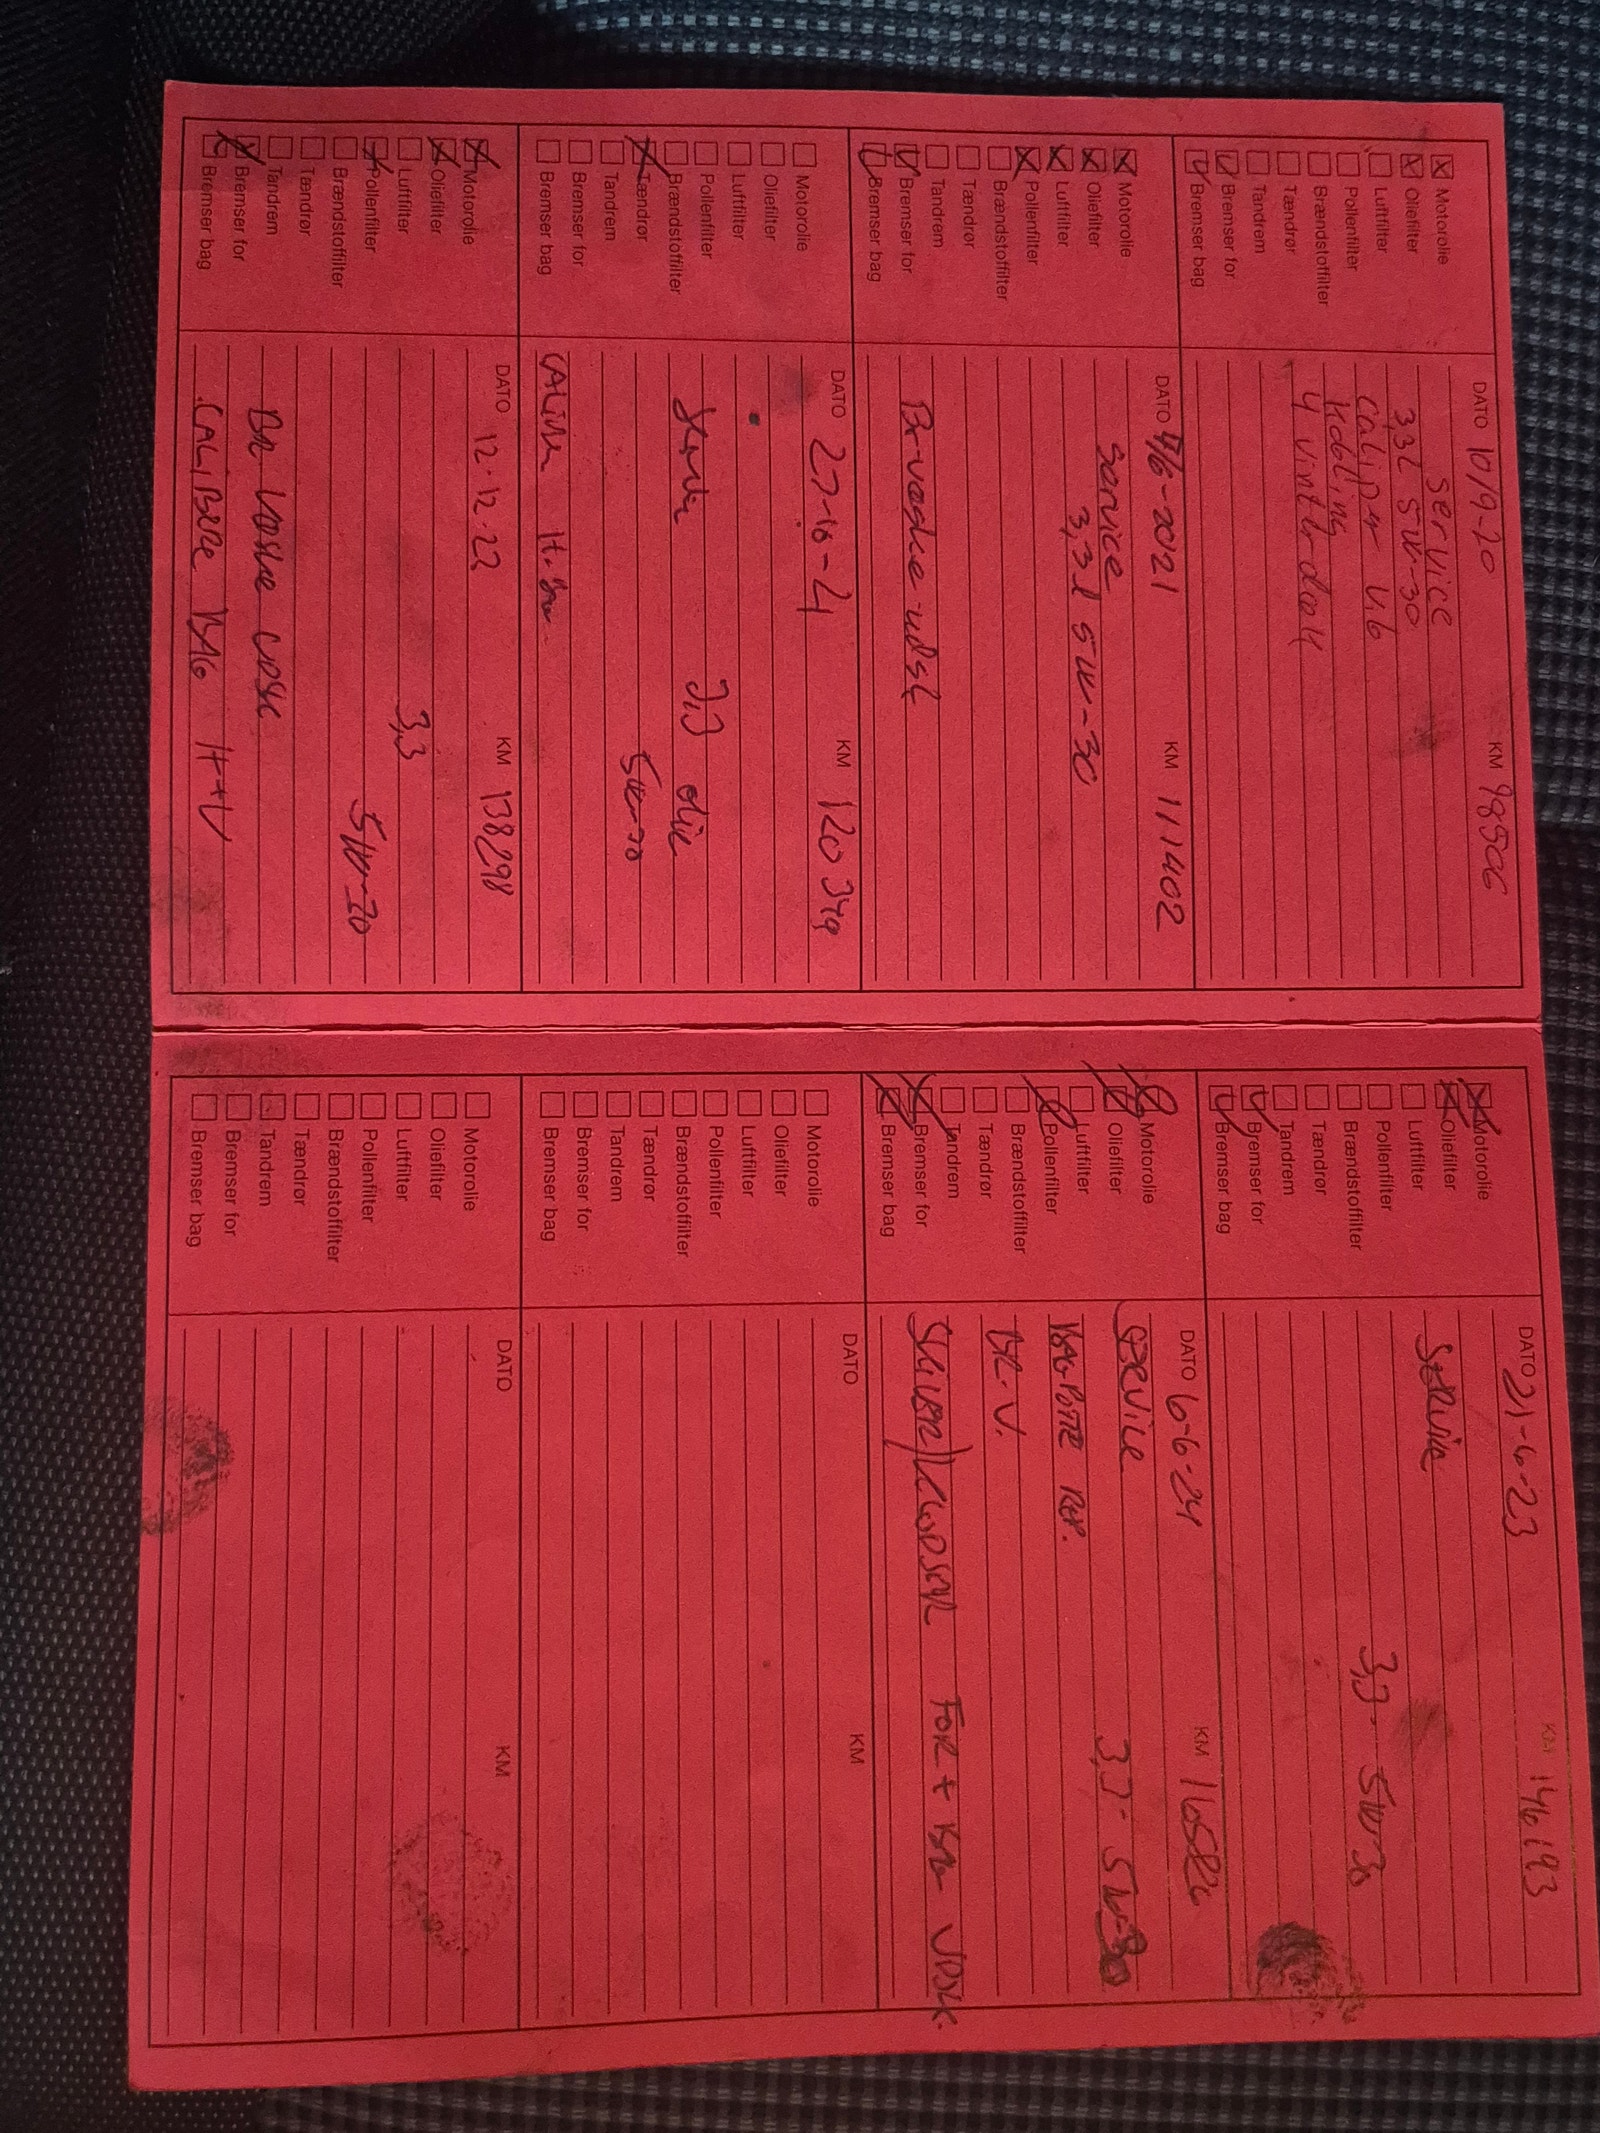 Motorolie
Oliefilter
Luftfilter
Pollenfilter
Brændstoffilter
Tændrør
Tandrem
Bremser for
Bremser bag
DATO 10/9-20 KM 98506
service
3,3l 5W-30
caliper V.b
kobling
4 vinterdæk
Motorolie
Oliefilter
Luftfilter
Pollenfilter
Brændstoffilter
Tændrør
Tandrem
Bremser for
Bremser bag
DATO 4/6-2021 KM 111402
service
3,3l 5W-30
Br-væske udsk
Motorolie
Oliefilter
Luftfilter
Pollenfilter
Brændstoffilter
Tændrør
Tandrem
Bremser for
Bremser bag
DATO KM 120349
3,3 olie
5W-30
Motorolie
Oliefilter
Luftfilter
Pollenfilter
Brændstoffilter
Tændrør
Tandrem
Bremser for
Bremser bag
DATO 12.12.22 KM 138298
3,3
5W-30
BR VÆSKE UDSK
CALIBRE BAG H+V
Motorolie
Oliefilter
Luftfilter
Pollenfilter
Brændstoffilter
Tændrør
Tandrem
Bremser for
Bremser bag
DATO 21-6-23 KM 146193
Service
3,3 - 5W30
Motorolie
Oliefilter
Luftfilter
Pollenfilter
Brændstoffilter
Tændrør
Tandrem
Bremser for
Bremser bag
DATO 6-6-24 KM
SERVICE 3,3 - 5W-30
REP.
BR.V.
SKIVER/KLODSER FOR + UDSK.
Motorolie
Oliefilter
Luftfilter
Pollenfilter
Brændstoffilter
Tændrør
Tandrem
Bremser for
Bremser bag
DATO KM
Motorolie
Oliefilter
Luftfilter
Pollenfilter
Brændstoffilter
Tændrør
Tandrem
Bremser for
Bremser bag
DATO KM